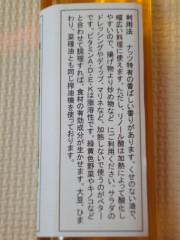 利用法　ナッツ特有の香ばしい香りがあります。くせのない油で、
幅広い料理に使えます。ただし、リノール酸は加熱によって酸化し
やすいので、揚げ物より炒め物などにご利用ください。サラダの
ドレッシングやディップ、マリネなど、加熱しないで使うのがベター
です。ビタミンA・D・E・Kは脂溶性です。緑黄色野菜やキノコなど
と合わせて調理すれば、食材の有効成分が生かせます。大豆、ひま
わり、菜種油とも同じ搾油機を使っております。